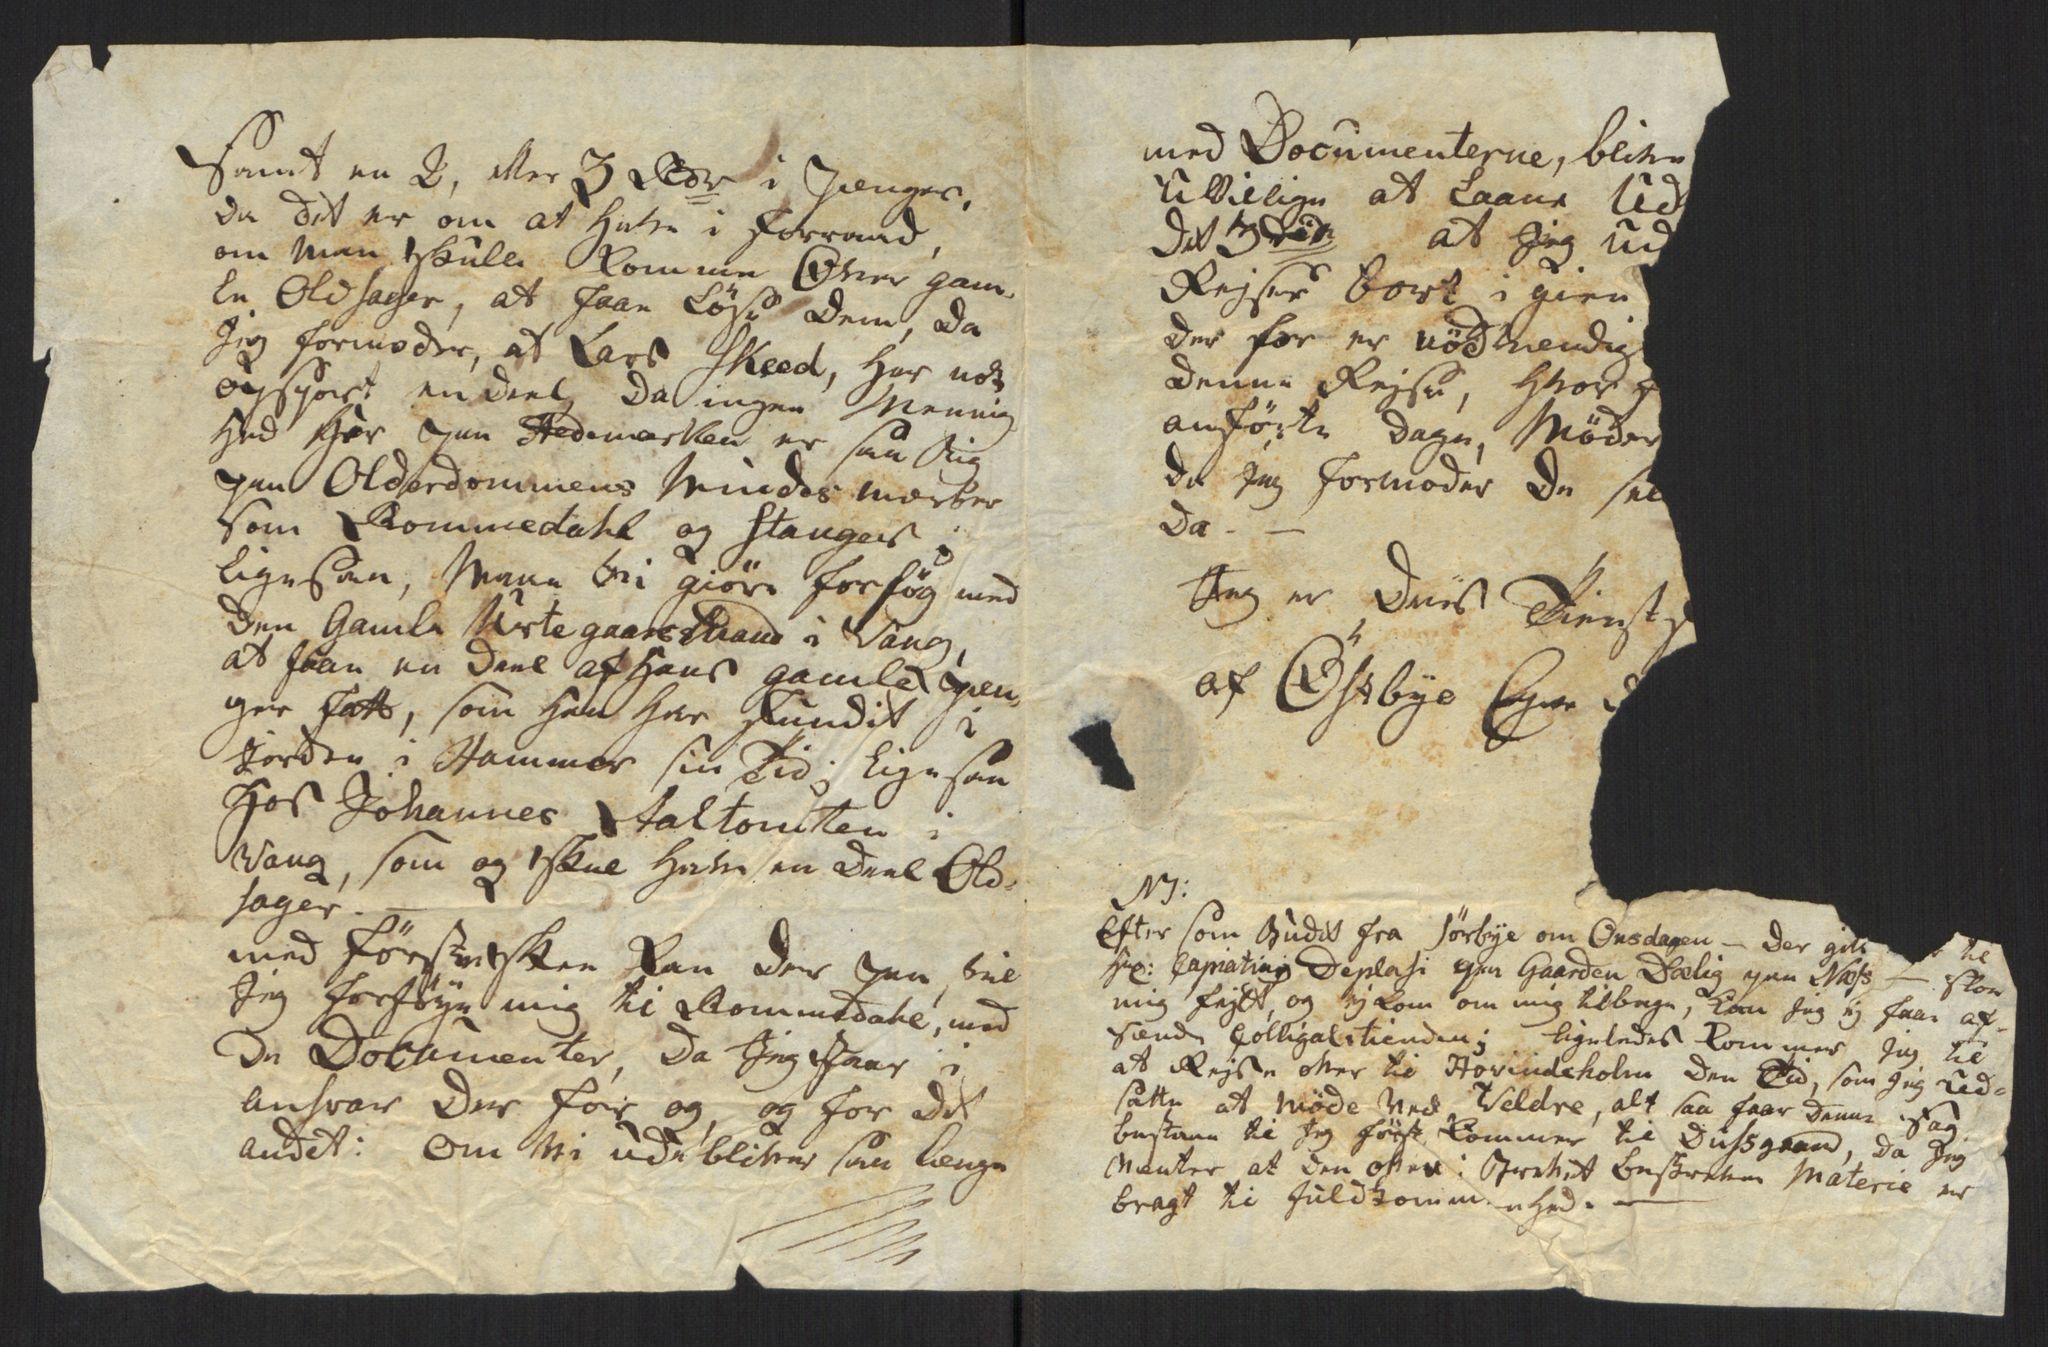 Samt en 2, eller 3 Rdr i Penger,
da det er om at Have i forraad,
om Man skulle komme Over gam-
le Oldsager, at faae Løse dem, da
Jeg formoder, at Lars Skeed, har nok
opsport en deel, da ingen Mennig
hed her paa Hedemarken er saa Rig
paa Olderdommens Mindes mærker
som Rommedahl og Stanges
ligesaa, Maae vi giøre forsøg med
den Gamle Urtegaards Mand i Vang,
at faae en deel af Hans gamle Pen-
ger fatt, som Han har fundet i
Jorden i Hammer sin Tid; ligesaa
Hos Johannes Aaltomten i
Vang, som og skal Have en deel Old-
sager. —
med første skee kan der paa, vil
Jeg forføye mig til Rommedahl, med
de Documenter, da Jeg staar i
ansvar der for og, og for det
andet: om vi udebliver saa længe
med Documenterne, bliver
Uvillige at Laane Ud
det 3die at Jeg ud
Rejser bort i gien
der for er nødvendig
denne Rejse, hvor
anførte dage, Møder
da Jeg formoder De
da - —
Jeg er Deris Tienst
af Østbye Egne
NJ:
Efter som Budet fra Sørbye om Onsdagen — der gik til
Hr: Capiating Deplasi paa Gaarden Dælig paa Næss — slog
mig fejlt, og ej kom om mig tilbage, kan Jeg ej faae af-
sende Colligalstienden; ligeledes kommer Jeg til
at Rejse over til Hovindsholm den Tid, som Jeg ud-
satte at møde ved Veldre, alt saa faar denne Sag
bestaae til Jeg først kommer til Dussgaard, da Jeg
venter at den oven i Brevet beskreven Materie er
bragt til fuldkommenhed. —